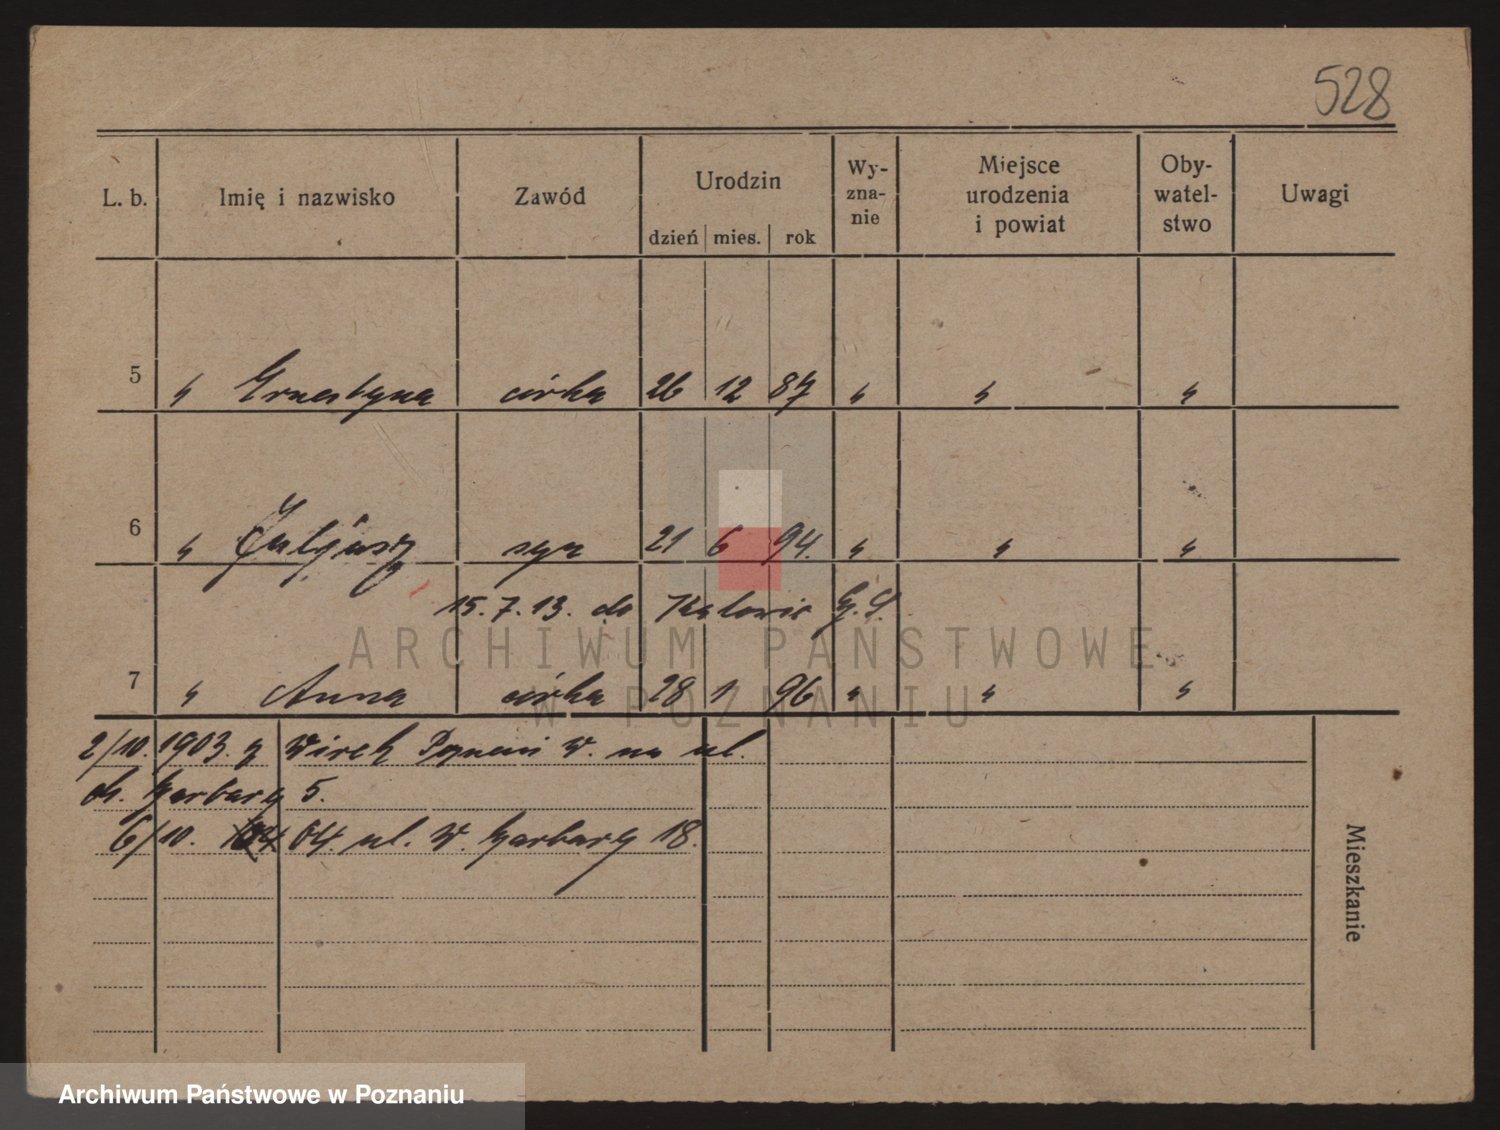 528
L. b. Imię i nazwisko Zawód Urodzin dzień mies. rok Wy-zna-nie Miejsce urodzenia i powiat Oby-watel-stwo Uwagi
5 " Ernestyna córka 26 12 87 " " "
6 " Juljusz syn 21 6 94. " " "
15. 7. 13. do Katowic G. S.
7 " Anna córka 28 1 96 " " "
2/10. 1903. z Wirek W. na ul.
Garbary 5.
6/10. 04 ul. W. Garbary 18.
Mieszkanie
ARCHIWUM PAŃSTWOWE
W POZNANIU
Archiwum Państwowe w Poznaniu